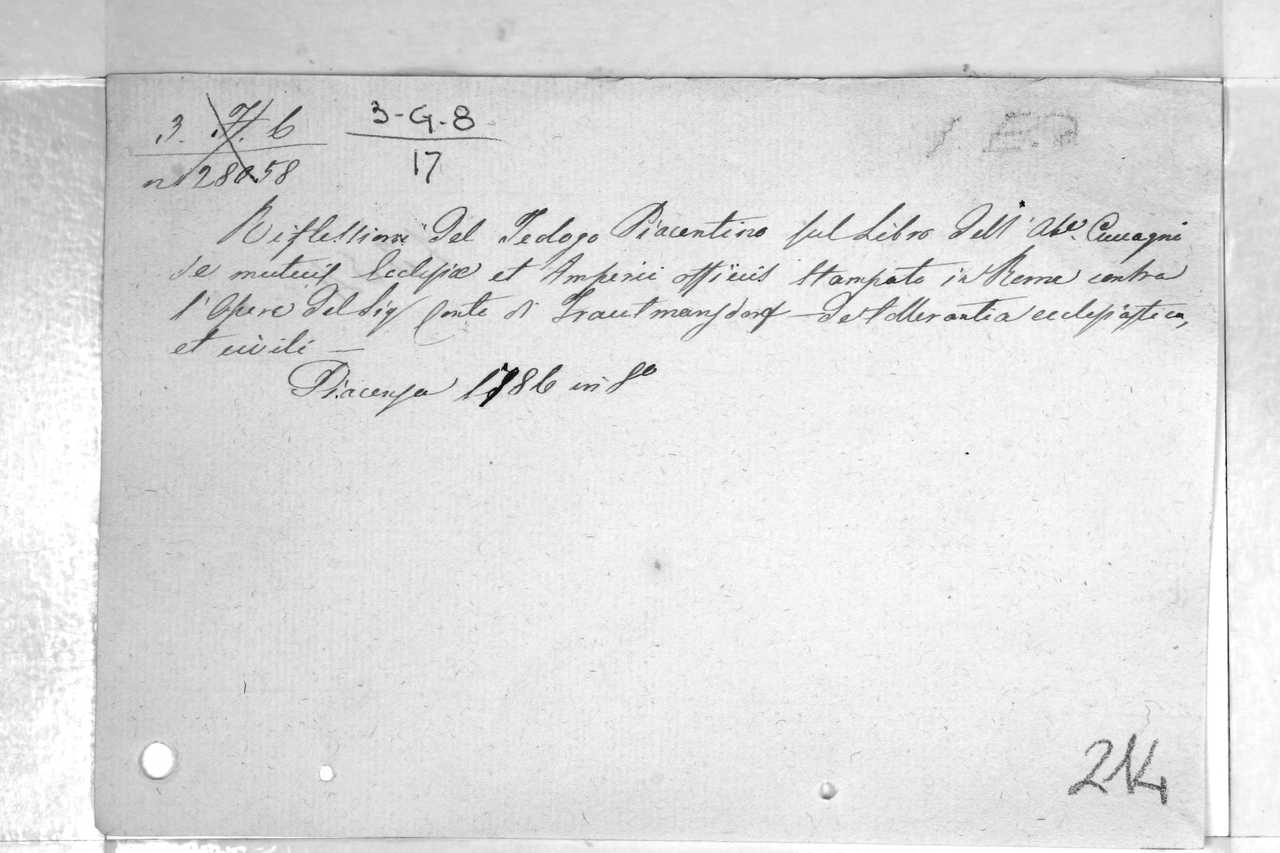 3. 7. 6
n. 28058
3-G-8
17
Riflessioni del Teologo Piacentino sul Libro dell' Abe. Cuccagni
de mutuis Ecclesiæ et Imperii officiis stampato in Roma contra
l'Opere del Sig Conte di Trautmansdorf — de tollerantia ecclesiastica,
et civili —
Piacenza 1786 in 8o
214